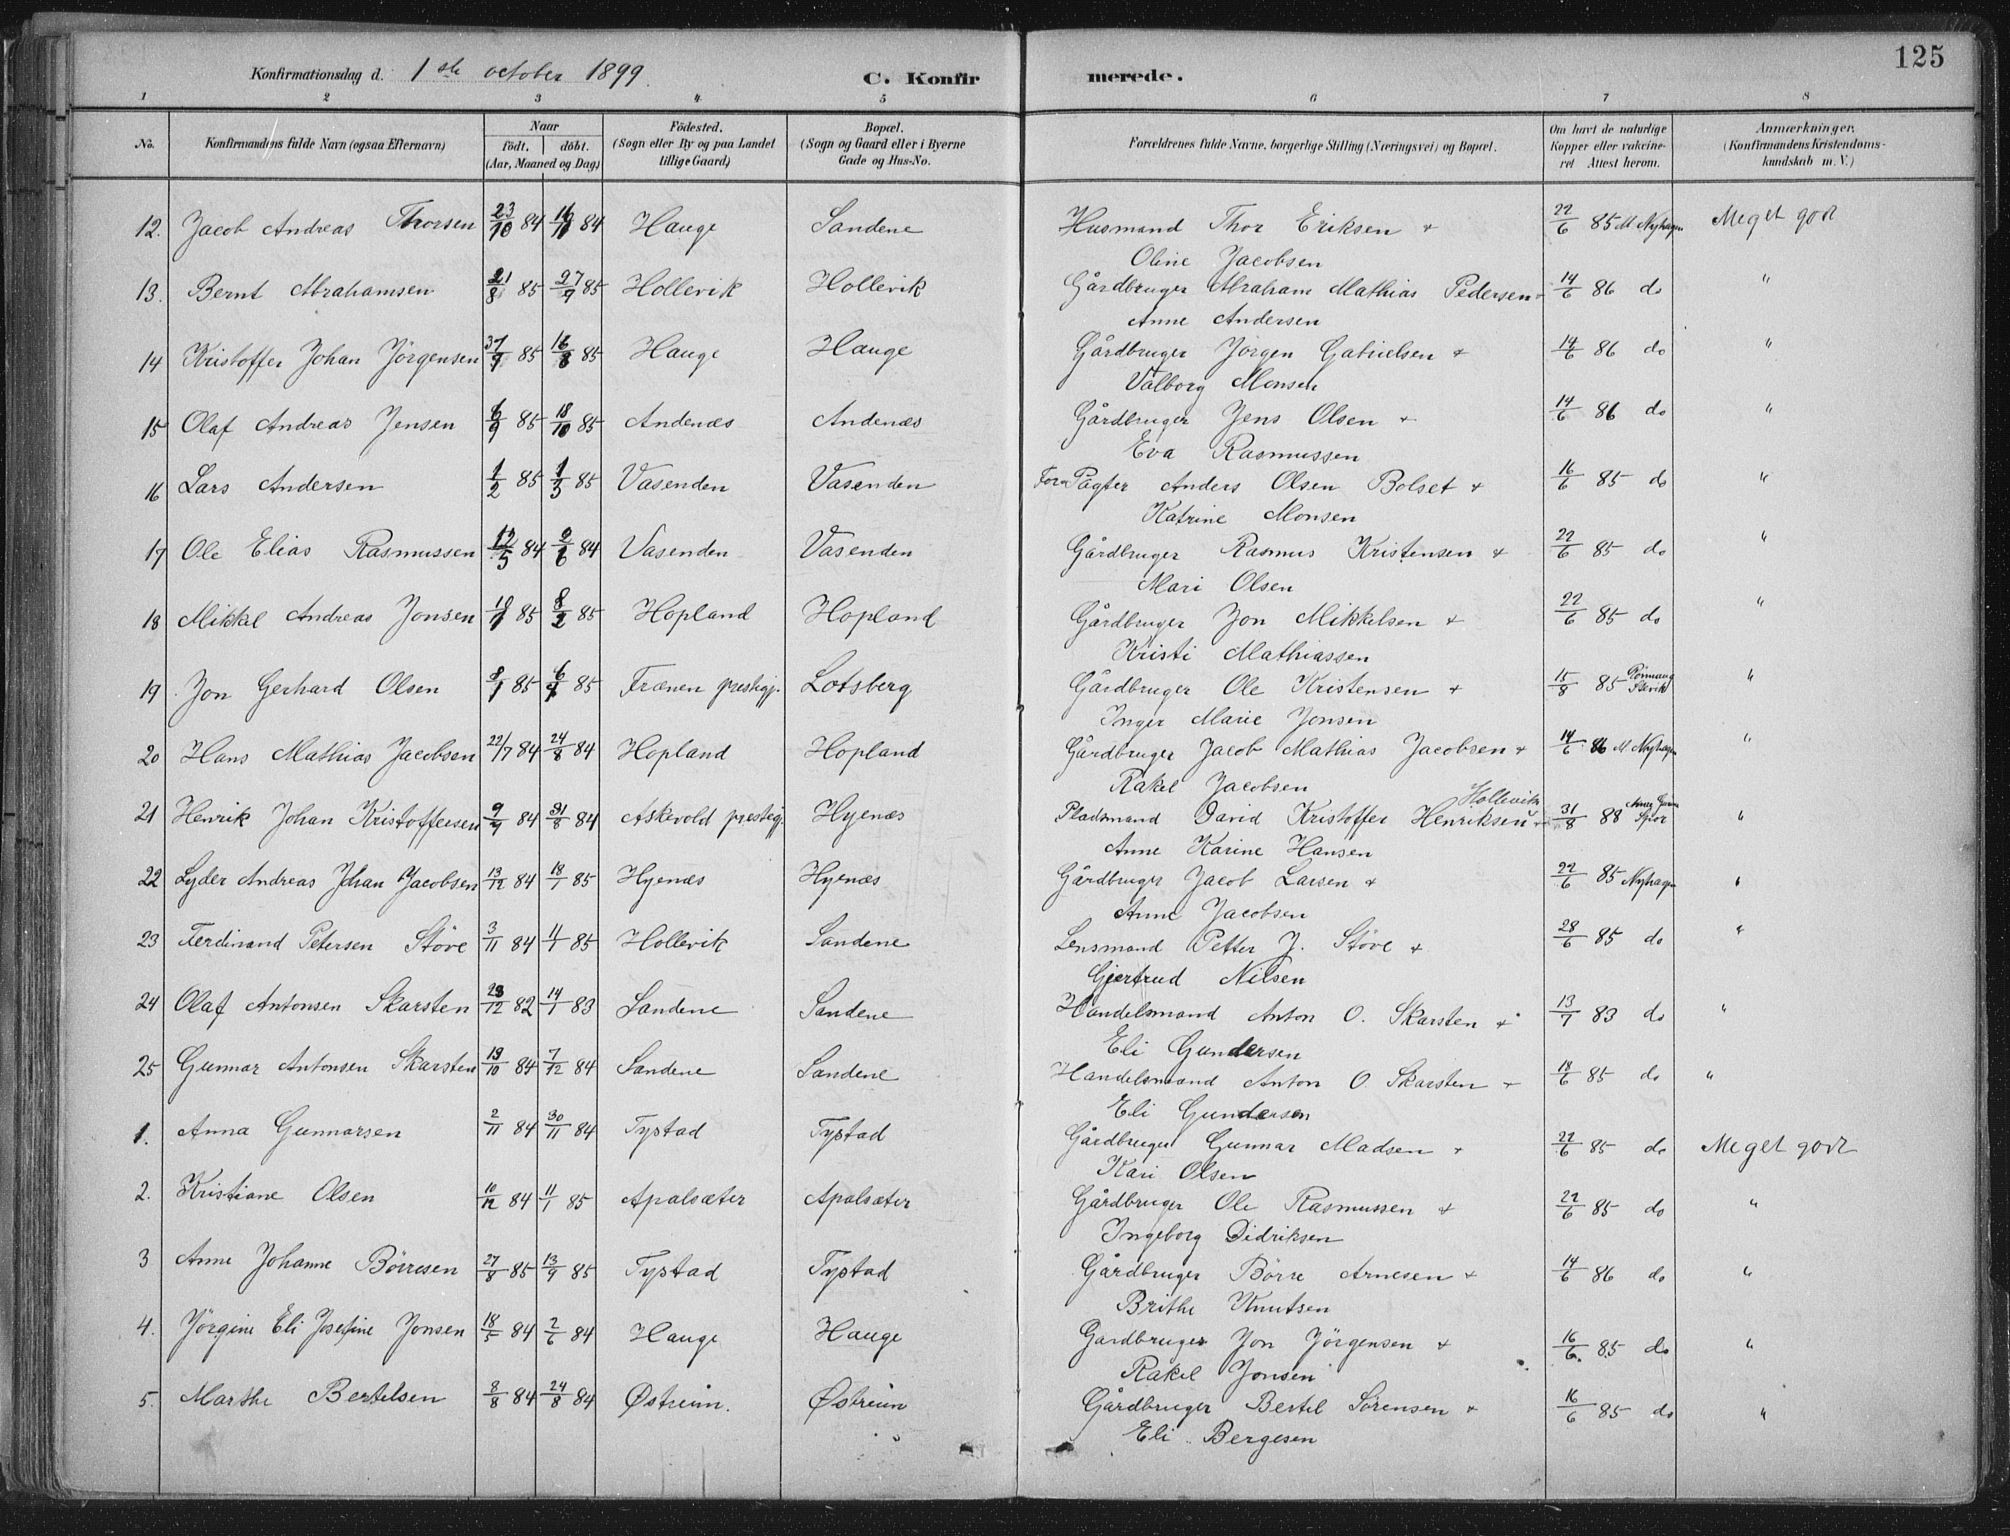 125
Konfirmationsdag d. 1ste october 1899. C. Konfirmerede.
1 2 3 4 5 6 7 8
No. Konfirmandens fulde Navn (ogsaa Efternavn) Naar födt. döbt. (Aar, Maaned og Dag) Födested. (Sogn eller By og paa Landet tillige Gaard) Bopæl. (Sogn og Gaard eller i Byerne Gade og Hus-No. Forældrenes fulde Navne, borgerlige Stilling (Næringsvei) og Bopæl. Om havt de naturlige Kopper eller vakcineret Attest herom. Anmærkninger. (Konfirmandens Kristendomskundskab m. V.)
12. Jacob Andreas Thorsen 23/10 84 16/11 84 Hauge Sandene Husmand Thor Eriksen + 22/6 85 M Nyhagen Meget godt
Oline Jacobsen
13. Bernt Abrahamsen 21/8 85 27/9 85 Hollevik Hollevik Gårdbruger Abraham Mathias Pedersen + 14/6 86 do "
Anne Andersen
14 Kristoffer Johan Jörgensen 85 16/8 85 Hauge Hauge Gårdbruger Jörgen Gabrielsen + 14/6 86 do "
Valborg Monsen
15 Olaf Andreas Jensen 6/9 85 18/10 85 Andenæs Andenæs Gårdbruger Jens Olsen + 14/6 86 do "
Eva Rasmussen
16 Lars Andersen 1/2 85 1/3 85 Vasenden Vasenden Forp Pagter Anders Olsen Bolset + 16/6 85 do "
Katrine Monsen
17 Ole Elias Rasmussen 12/5 84 2/6 84 Vasenden Vasenden Gårdbruger Rasmus Kristensen + 22/6 85 do "
Mari Olsen
18 Mikkel Andreas Jonsen 18/1 85 8/2 85 Hopland Hopland Gårdbruger Jon Mikkelsen + 22/6 85 do "
Kristi Mathiassen
19 Jon Gerhard Olsen 8/1 85 85 Frænen prestegj. Lotsberg Gårdbruger Ole Kristensen + 15/8 85 "
Inger Marie Jonsen
20 Hans Mathias Jacobsen 22/7 84 24/8 84 Hopland Hopland Gårdbruger Jacob Mathias Jacobsen + 14/6 86 M Nyhagen "
Rakel Jacobsen
21 Henrik Johan Kristoffersen 9/9 84 31/8 84 Askevold prestegj. Hyenæs Pladsmand David Kristoffer Henriksen Hollevik + 31/8 88 "
Anne Karine Hansen
22 Lyder Andreas Johan Jacobsen 13/12 84 18/1 85 Hyenæs Hyenæs Gårdbruger Jacob Larsen + 22/6 85 Nyhagen "
Anne Jacobsen
23 Ferdinand Petersen Störe 3/11 84 11/1 85 Hollevik Sandene Lensmand Petter J. Störe + 28/6 85 do "
Gjertrud Nilsen
24 Olaf Antonsen Skarsten 28/12 82 14/1 83 Sandene Sandene Handelsmand Anton O. Skarsten + 13/7 83 do "
Eli Gundersen
25 Gunnar Antonsen Skarsten 19/10 84 7/12 84 Sandene Sandene Handelsmand Anton O. Skarsten + 18/6 85 do "
Eli Gundersen
1. Anna Gunnarsen 2/11 84 30/11 84 Tystad Tystad Gårdbruger Gunnar Madsen + 22/6 85 do Meget godt
Kari Olsen
2. Kristiane Olsen 10/12 84 11/1 85 Apalsæter Apalsæter Gårdbruger Ole Rasmussen + 22/6 85 do "
Ingeborg Didriksen
3 Anne Johanne Börresen 27/8 85 13/9 85 Tystad Tystad Gårdbruger Börre Arnesen + 14/6 86 do "
Brithe Knutsen
4. Jörgine Eli Josefine Jonsen 18/5 84 2/6 84 Hauge Hauge Gardbruger Jon Jörgensen + 16/6 85 do "
Rakel Jonsen
5. Marthe Bertelsen 8/8 84 24/8 84 Østreim. Østreim Gårdbruger Bertel Sörensen + 16/6 85 do "
Eli Bergesen